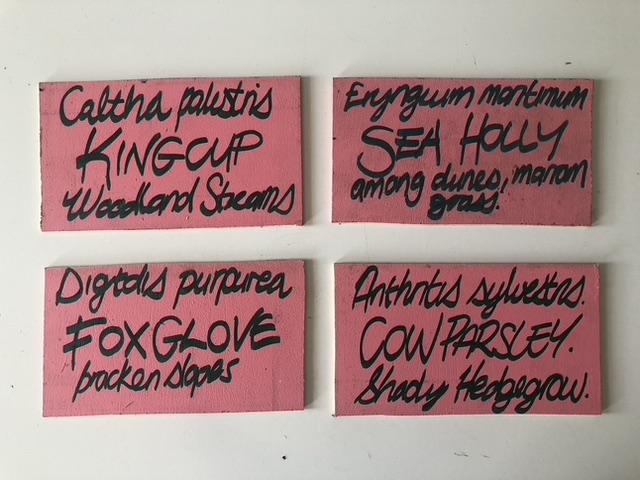 Caltha palustris
KINGCUP
Woodland Streams
Eryngium maritimum
SEA HOLLY
among dunes, marram
grass.
Digitalis purpurea
FOXGLOVE
bracken slopes
Anthrits sylvestris.
COW PARSLEY.
Shady Hedgegrow.